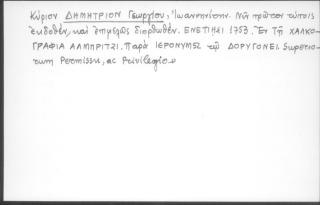 Κύριον ΔΗΜΗΤΡΙΟΝ Γεωργίου, Ἰωαννηνίτην. Νῦν πρῶτον τύποις
ἐκδοθέν, καὶ ἐπιμελῶς διορθωθέν. ΕΝΕΤΙΗΣΙ 1753. Ἐν Τῇ ΧΑΛΚΟ-
ΓΡΑΦΙΑ ΑΛΜΠΡΙΤΖΙ. Παρὰ ΙΕΡΟΝΥΜῼ τῷ ΔΟΡΥΓΟΝΕΙ. Superio-
rum Permissu, ac Privilegio.